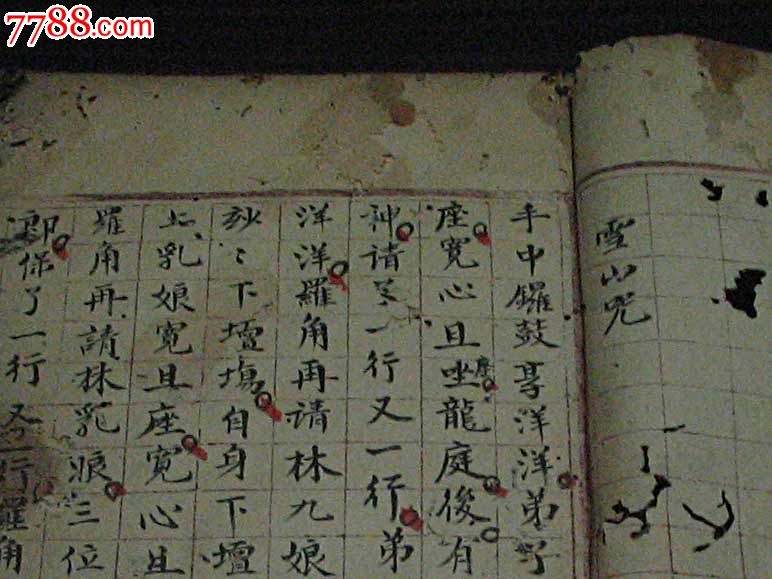 7788.com
雪山咒
手中鑼鼓享洋洋弟子
座寬心且坐龍庭後有
座
神請了一行又一行弟
洋洋羅角再請林九娘
紗〻下壇塲自身下壇
上乳娘寬且座寬心且
羅角再請林乳娘三位
郎保了一行又行羅角